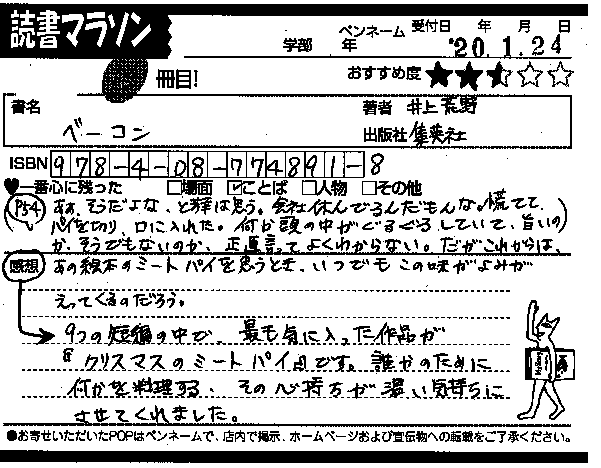 読書マラソン
学部 年 ペンネーム 受付日 年 月 日
'20.1.24
冊目! おすすめ度 ★★☆☆
書名 著者 井上荒野
ベーコン 出版社 集英社
ISBN 978-4-08-774891-8
♥一番心に残った □場面 ☑ことば □人物 □その他
P54 ああ、そうだよな、と は思う。会社休んでるんだもんな。慌てて、
パイを切り、口に入れた。何か頭の中がぐるぐるしていて、旨いの
か、そうでもないのか、正直言ってよくわからない。だがこれからは、
感想 あの絵本のミートパイを思うとき、いつでもこの味がよみが
えってくるのだろう。
→9つの短編の中で、最も気に入った作品が
『クリスマスのミートパイ』です。誰かのために
何かを料理する、その心持ちが温い気持ちに
させてくれました。
●お寄せいただいたPOPはペンネームで、店内で掲示、ホームページおよび宣伝物への転載をご了承ください。